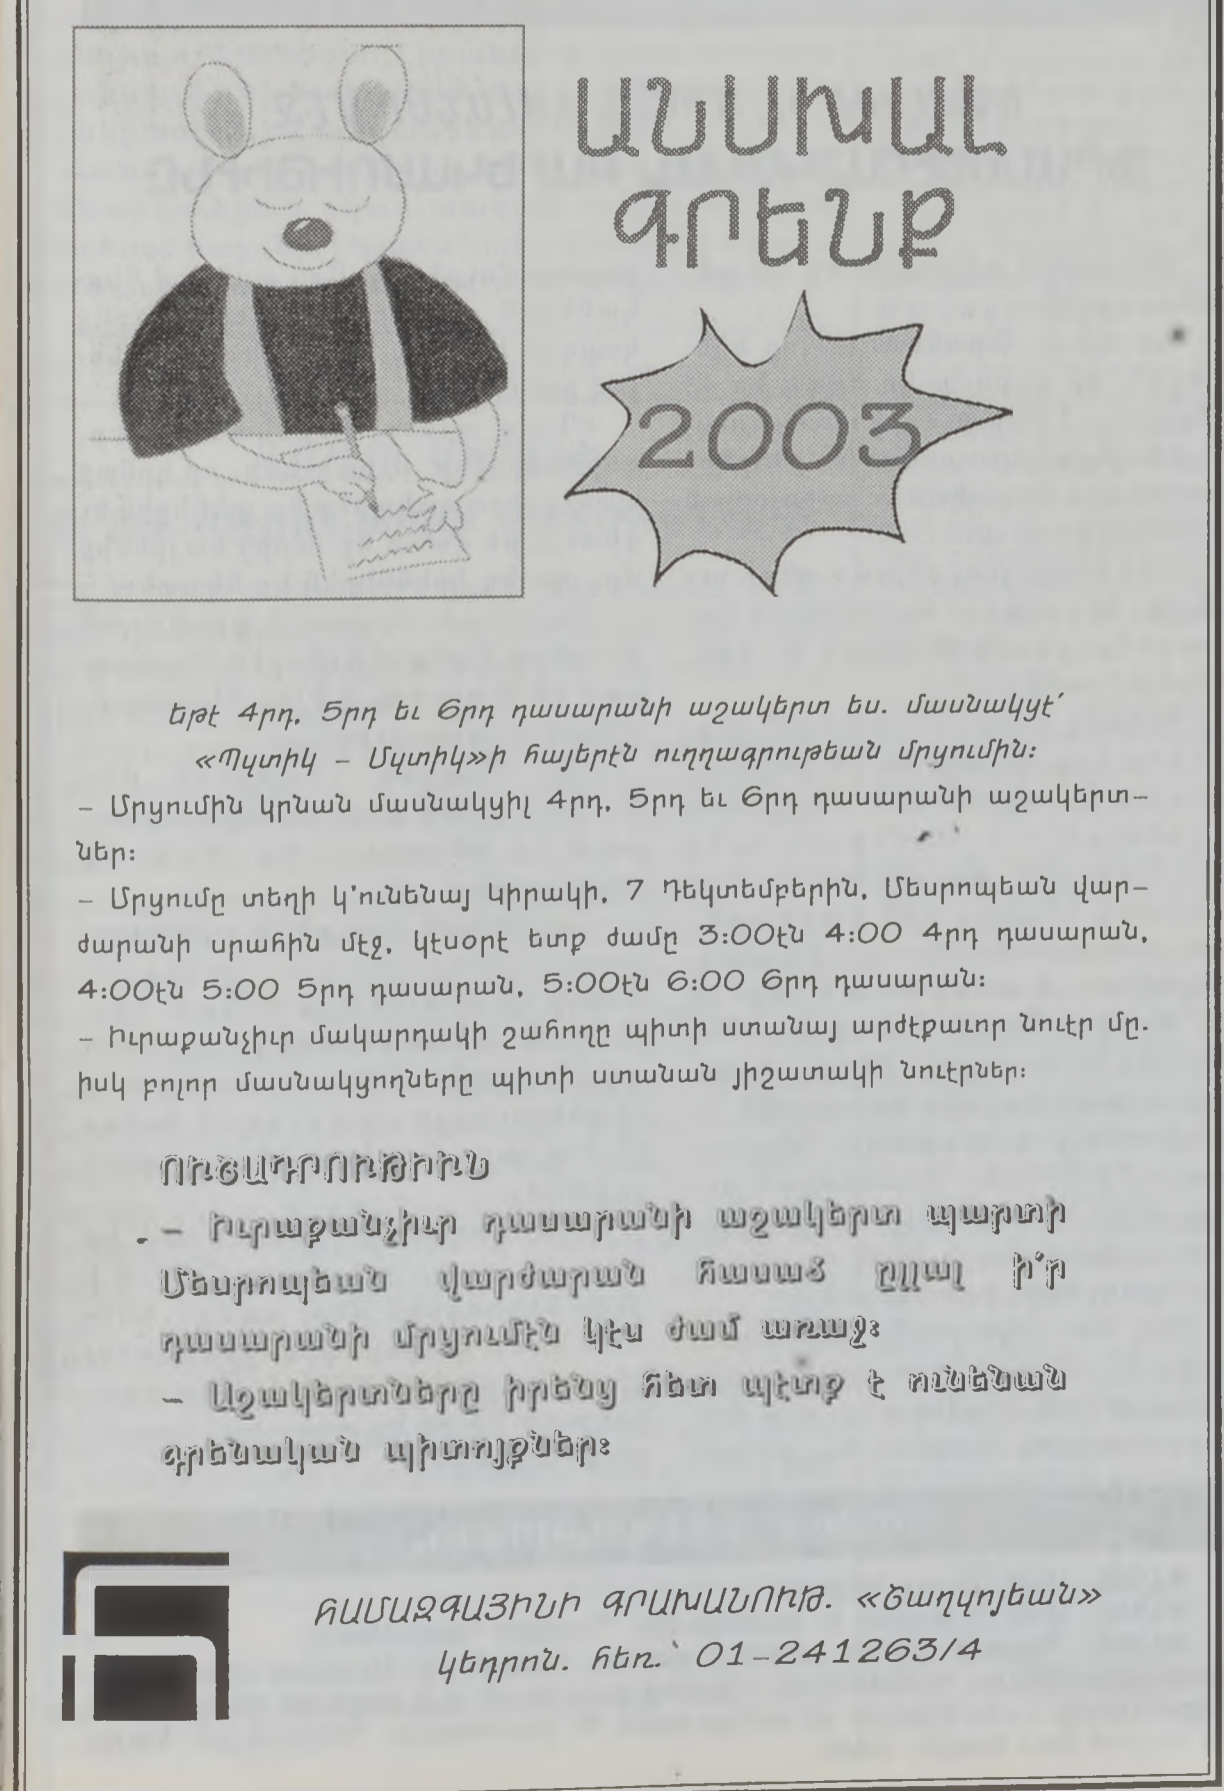 ԱՆՍԽԱԼ
ԳՐԵՆՔ
2003
Եթէ 4րդ, 5րդ եւ 6րդ դասարանի աշակերտ ես. մասնակցէ՛
«Պզտիկ – Մզտիկ»ի հայերէն ուղղագրութեան մրցումին:
– Մրցումին կրնան մասնակցիլ 4րդ, 5րդ եւ 6րդ դասարանի աշակերտ–
ներ:
– Մրցումը տեղի կ՚ունենայ Կիրակի, 7 Դեկտեմբերին, Մեսրոպեան վար–
ժարանի սրահին մէջ, կէսօրէ ետք ժամը 3:00էն 4:00 4րդ դասարան,
4:00էն 5:00 5րդ դասարան, 5:00էն 6:00 6րդ դասարան:
– Իւրաքանչիւր մակարդակի շահողը պիտի ստանայ արժէքաւոր նուէր մը.
իսկ բոլոր մասնակցողները պիտի ստանան յիշատակի նուէրներ:
ՈՒՇԱԴՐՈՒԹԻՒՆ
– Իւրաքանչիւր դասարանի աշակերտ պարտի
Մեսրոպեան վարժարան հասած ըլլալ ի՛ր
դասարանի մրցումէն կէս ժամ առաջ:
– Աշակերտները իրենց հետ պէտք է ունենան
գրենական պիտոյքներ:
ՀԱՄԱԶԳԱՅԻՆԻ ԳՐԱԽԱՆՈՒԹ. «Շաղզոյեան»
կեդրոն. հեռ.՝ 01–241263/4